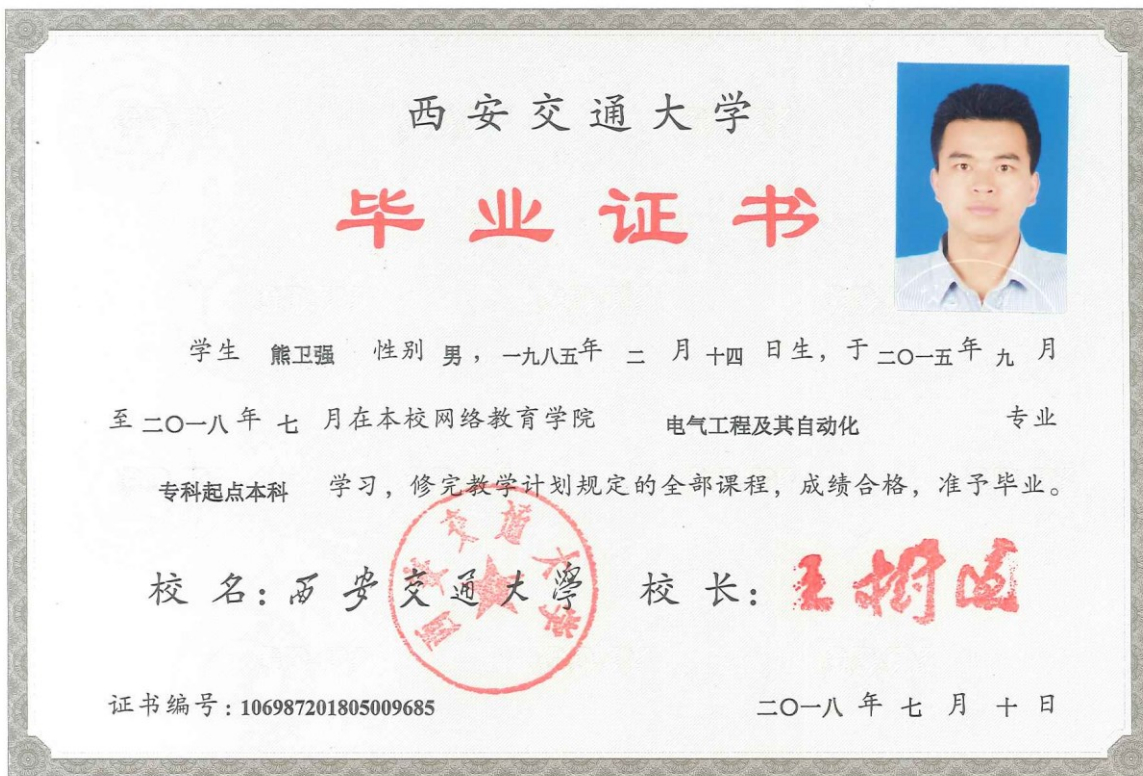 西安交通大学
毕业证书
学生 熊卫强 性别 男，一九八五年 二 月 十四 日生，于 二〇一五年 九 月
至 二〇一八 年 七 月在本校网络教育学院 电气工程及其自动化 专业
专科起点本科 学习，修完教学计划规定的全部课程，成绩合格，准予毕业。
校 名：西安交通大學 校 长：王树国
西安交通大学
证书编号：106987201805009685 二〇一八 年 七 月 十 日